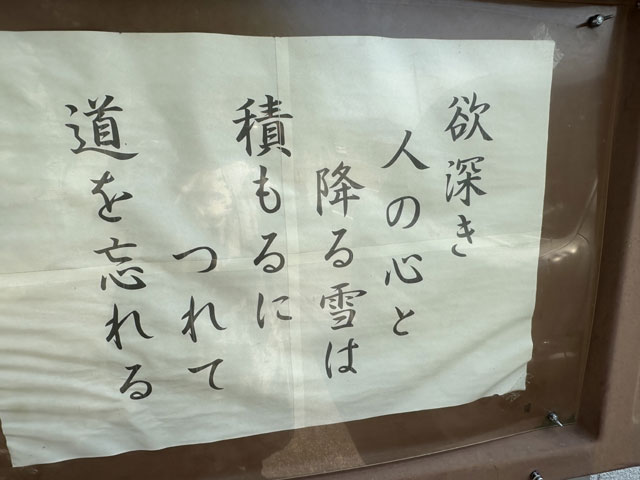 欲深き
人の心と
降る雪は
積もるに
つれて
道を忘れる